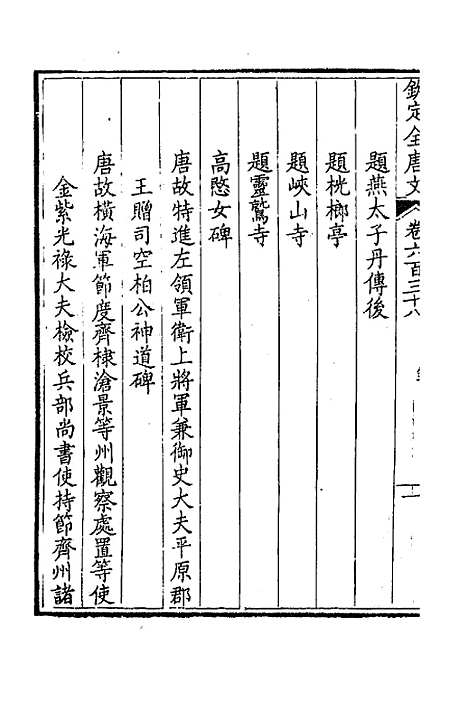 欽定全唐文 卷六百三十八
題燕太子丹傳後
題桄榔亭
題峽山寺
題靈鷲寺
高愍女碑
唐故特進左領軍衛上將軍兼御史大夫平原郡
王贈司空柏公神道碑
唐故橫海軍節度齊棣滄景等州觀察處置等使
金紫光祿大夫檢校兵部尚書使持節齊州諸